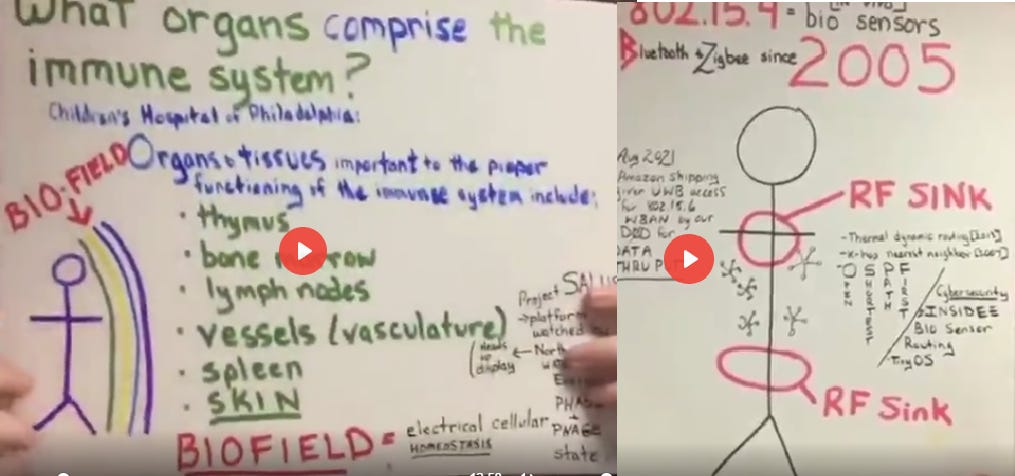 What organs comprise the
immune system?
Children's Hospital of Philadelphia:
BIO-FIELD
Organs & tissues important to the proper
functioning of the immune system include:
• thymus
• bone marrow
• lymph nodes
• vessels (vasculature)
• spleen
• SKIN
Project SALUS
→platform
watched
heads
up
display
← North
BIOFIELD = electrical cellular
HOMEOSTASIS
PHASE
state
802.15.4 = bio sensors
Bluetooth & Zigbee since 2005
Aug 2021
Amazon Shipping
UWB access
for 802.15.6
WBAN by our
DOD for
DATA
THRU PUT
RF SINK
-Thermal dynamic routing
nearest neighbor
OPEN
SHORTEST
PATH
FIRST
Cybersecurity
INSIDEE
BIO Sensor
Routing
-TinyOS
RF Sink